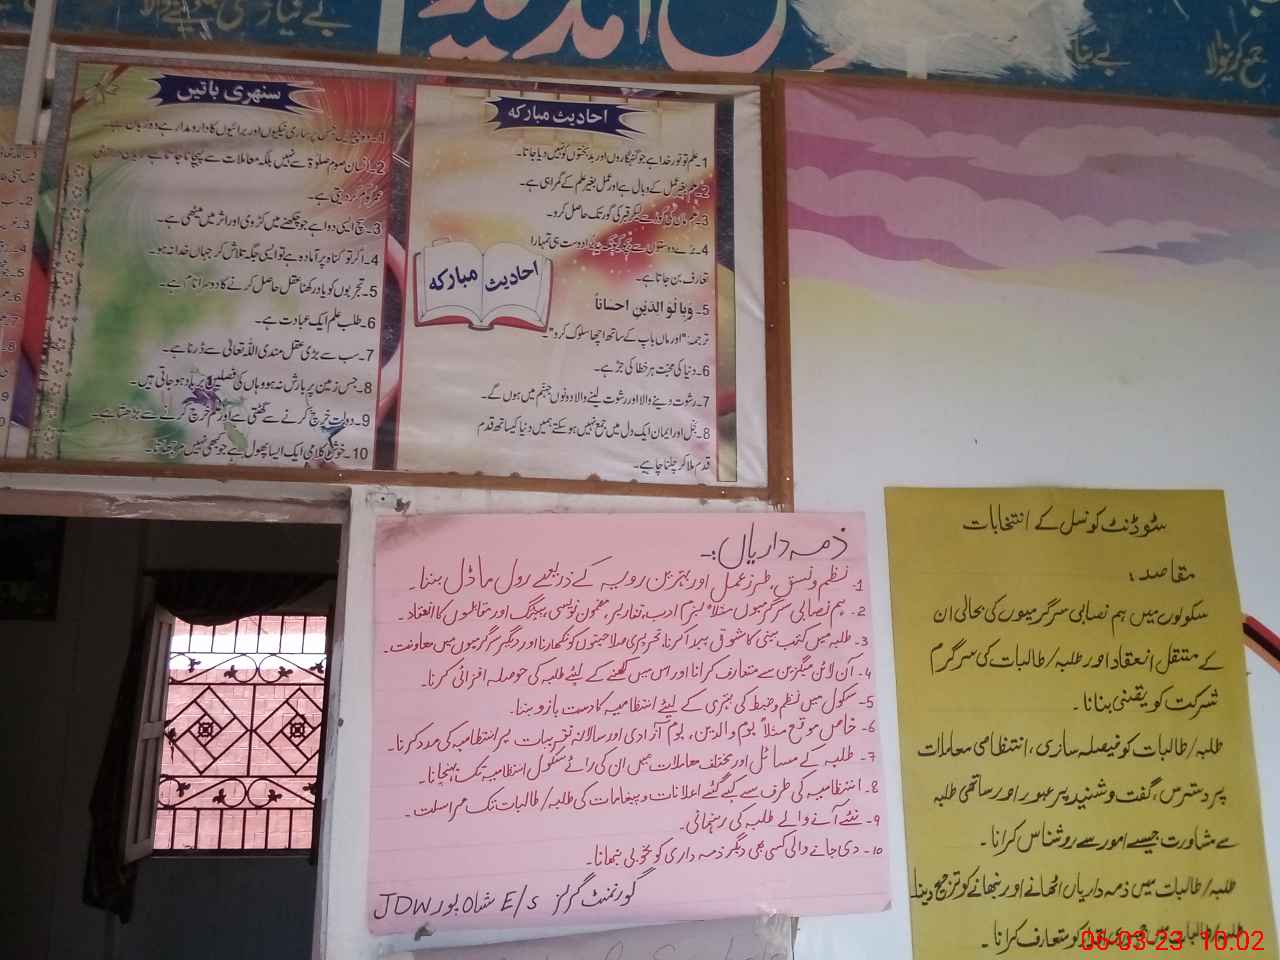 سنہری باتیں
2۔انسان صوم صلوٰۃ سے نہیں بلکہ معاملات سے پہچانا جاتا ہے
3۔سچ ایسی دوا ہے جو چکھنے میں کڑوی اور اثر میں میٹھی ہے۔
4۔اگر تو گناہ پر آمادہ ہے تو ایسی جگہ تلاش کر جہاں خدا نہ ہو۔
5۔تجربوں کو یاد رکھنا عقل حاصل کرنے کا دوسرا نام ہے۔
6۔طلب علم ایک عبادت ہے۔
7۔سب سے بڑی عقل مندی اللہ تعالیٰ سے ڈرنا ہے۔
8۔جس زمین پر بارش نہ ہو وہاں کی فصلیں برباد ہو جاتی ہیں۔
9۔دولت خرچ کرنے سے گھٹتی ہے اور علم خرچ کرنے سے بڑھتا ہے۔
10۔خوش کلامی ایک ایسا پھول ہے جو کبھی نہیں مرجھاتا۔
احادیث مبارکہ
1۔علم تو نور خدا ہے جو گنہگاروں اور بدبختوں کو نہیں دیا جاتا۔
2۔علم بغیر عمل کے وبال ہے اور عمل بغیر علم کے گمراہی ہے۔
3۔علم ماں کی گود سے لیکر قبر کی گور تک حاصل کرو۔
4۔برے دوستوں سے بچو دوست ہی تمہارا
تعارف بن جاتا ہے۔
5۔وَبِا لوَ الدَیْنِ احسَاناً
ترجمہ:"اور ماں باپ کے ساتھ اچھا سلوک کرو"۔
6۔دنیا کی محبت ہر خطا کی جڑ ہے۔
7۔رشوت دینے والا اور رشوت لینے والا دونوں جہنم میں ہوں گے۔
8۔بخل اور ایمان ایک دل میں جمع نہیں ہو سکتے ہمیں دنیا کیساتھ قدم
قدم ملا کر چلنا چاہیے۔
احادیث مبارکہ
ذمہ داریاں:۔
1۔ نظم و نسق، طرز عمل اور بہترین رویہ کے ذریعے رول ماڈل بننا۔
2۔ ہم نصابی سرگرمیوں مثلاً بزم ادب، تقاریر، مضمون نویسی، پینٹنگ اور مقابلوں کا انعقاد۔
3۔ طلبہ میں کتب بینی کا شوق پیدا کرنا، تحریری صلاحیتوں کو نکھارنا اور دیگر سرگرمیوں میں معاونت۔
4۔ آن لائن میگزین سے متعارف کرانا اور اس میں لکھنے کے لیئے طلبہ کی حوصلہ افزائی کرنا۔
5۔ سکول میں نظم و ضبط کی بہتری کے لیئے انتظامیہ کا دست بازو بننا۔
6۔ خاص موقع مثلاً یوم والدین، یوم آزادی اور سالانہ تقریبات پر انتظامیہ کی مدد کرنا۔
7۔ طلبہ کے مسائل اور مختلف معاملات میں ان کی رائے سکول انتظامیہ تک پہنچانا۔
8۔ انتظامیہ کی طرف سے کیے گئے اعلانات و پیغامات کی طلبہ/طالبات تک مراسلت۔
9۔ نئے آنے والے طلبہ کی رہنمائی۔
10۔ دی جانے والی کسی بھی دیگر ذمہ داری کو بخوبی نبھانا۔
گورنمنٹ گرلز E/S شاہ پور JDW
سٹوڈنٹ کونسل کے انتخابات
مقاصد:
سکولوں میں ہم نصابی سرگرمیوں کی بحالی ان
کے منتقل انعقاد اور طلبہ/طالبات کی سرگرم
شرکت کو یقینی بنانا۔
طلبہ/طالبات کو فیصلہ سازی، انتظامی معاملات
پر دسترس، گفت و شنید پر عبور اور ساتھی طلبہ
سے مشاورت جیسے امور سے روشناس کرانا۔
طلبہ/طالبات میں ذمہ داریاں اٹھانے اور نبھانے کو ترجیح دینا
طلبہ/طالبات میں کو متعارف کرانا۔
06-03-23 10:02